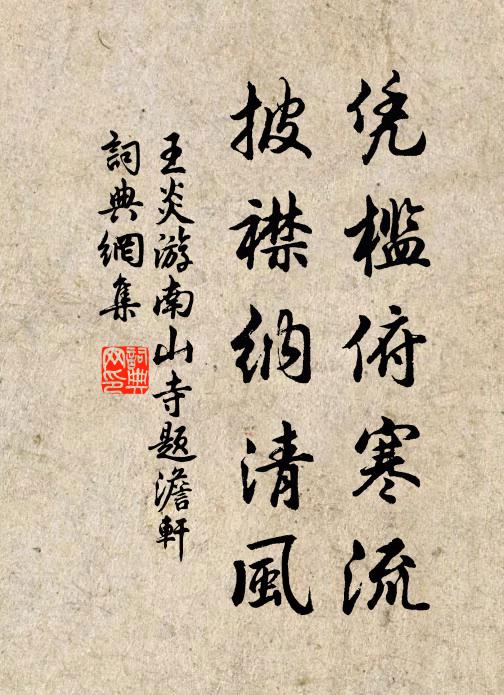 凭檻俯寒流
披襟納清風
王炎游南山寺题澹軒
詞典網集
詞典网印